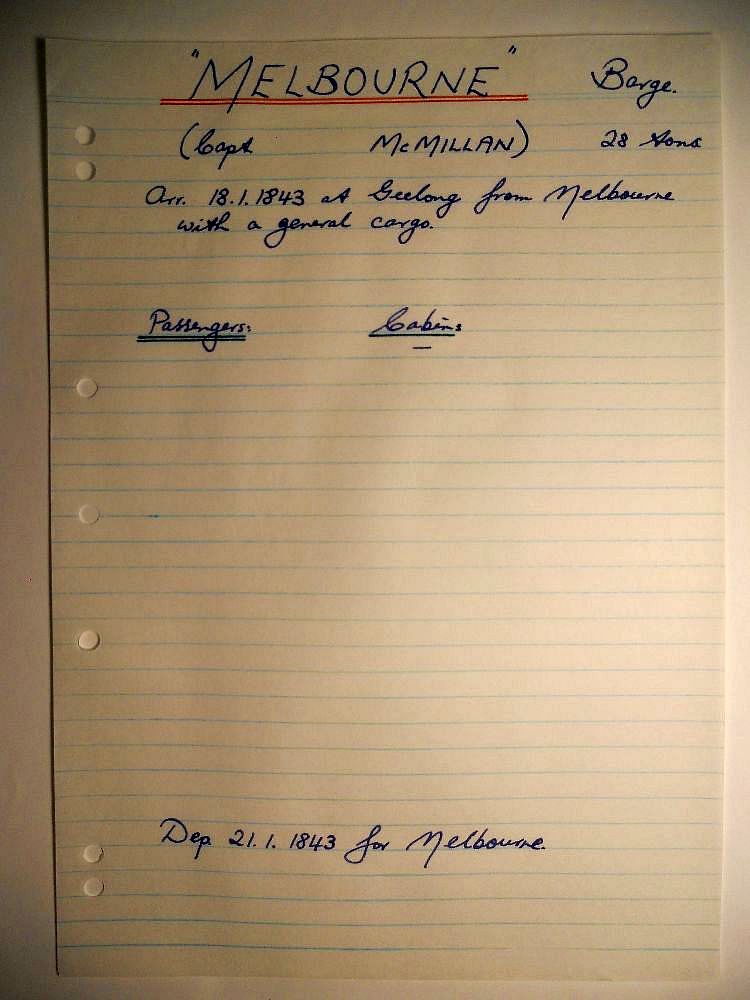 "MELBOURNE" Barge.
(Capt McMILLAN) 28 tons
Arr. 18.1.1843 at Geelong from Melbourne
with a general cargo.
Passengers: Cabin:
—
Dep. 21.1.1843 for Melbourne.